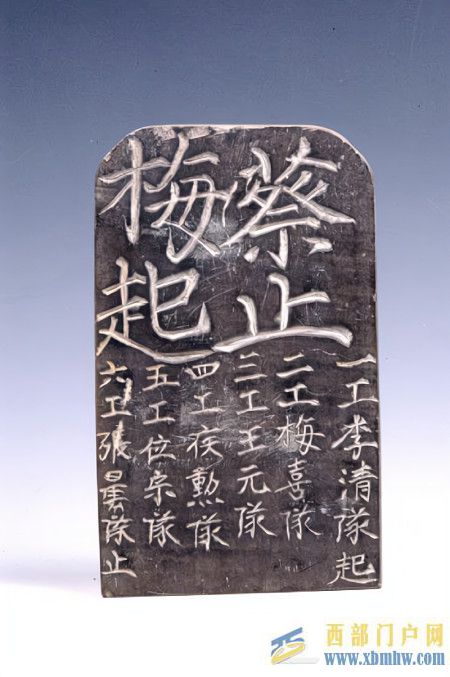 蔡止
梅起
一工李清隊起
二工梅喜隊
三工王元隊
四工疾勲隊
五工位宗隊
六工張昙隊止
西部门户网
www.xbmhw.com